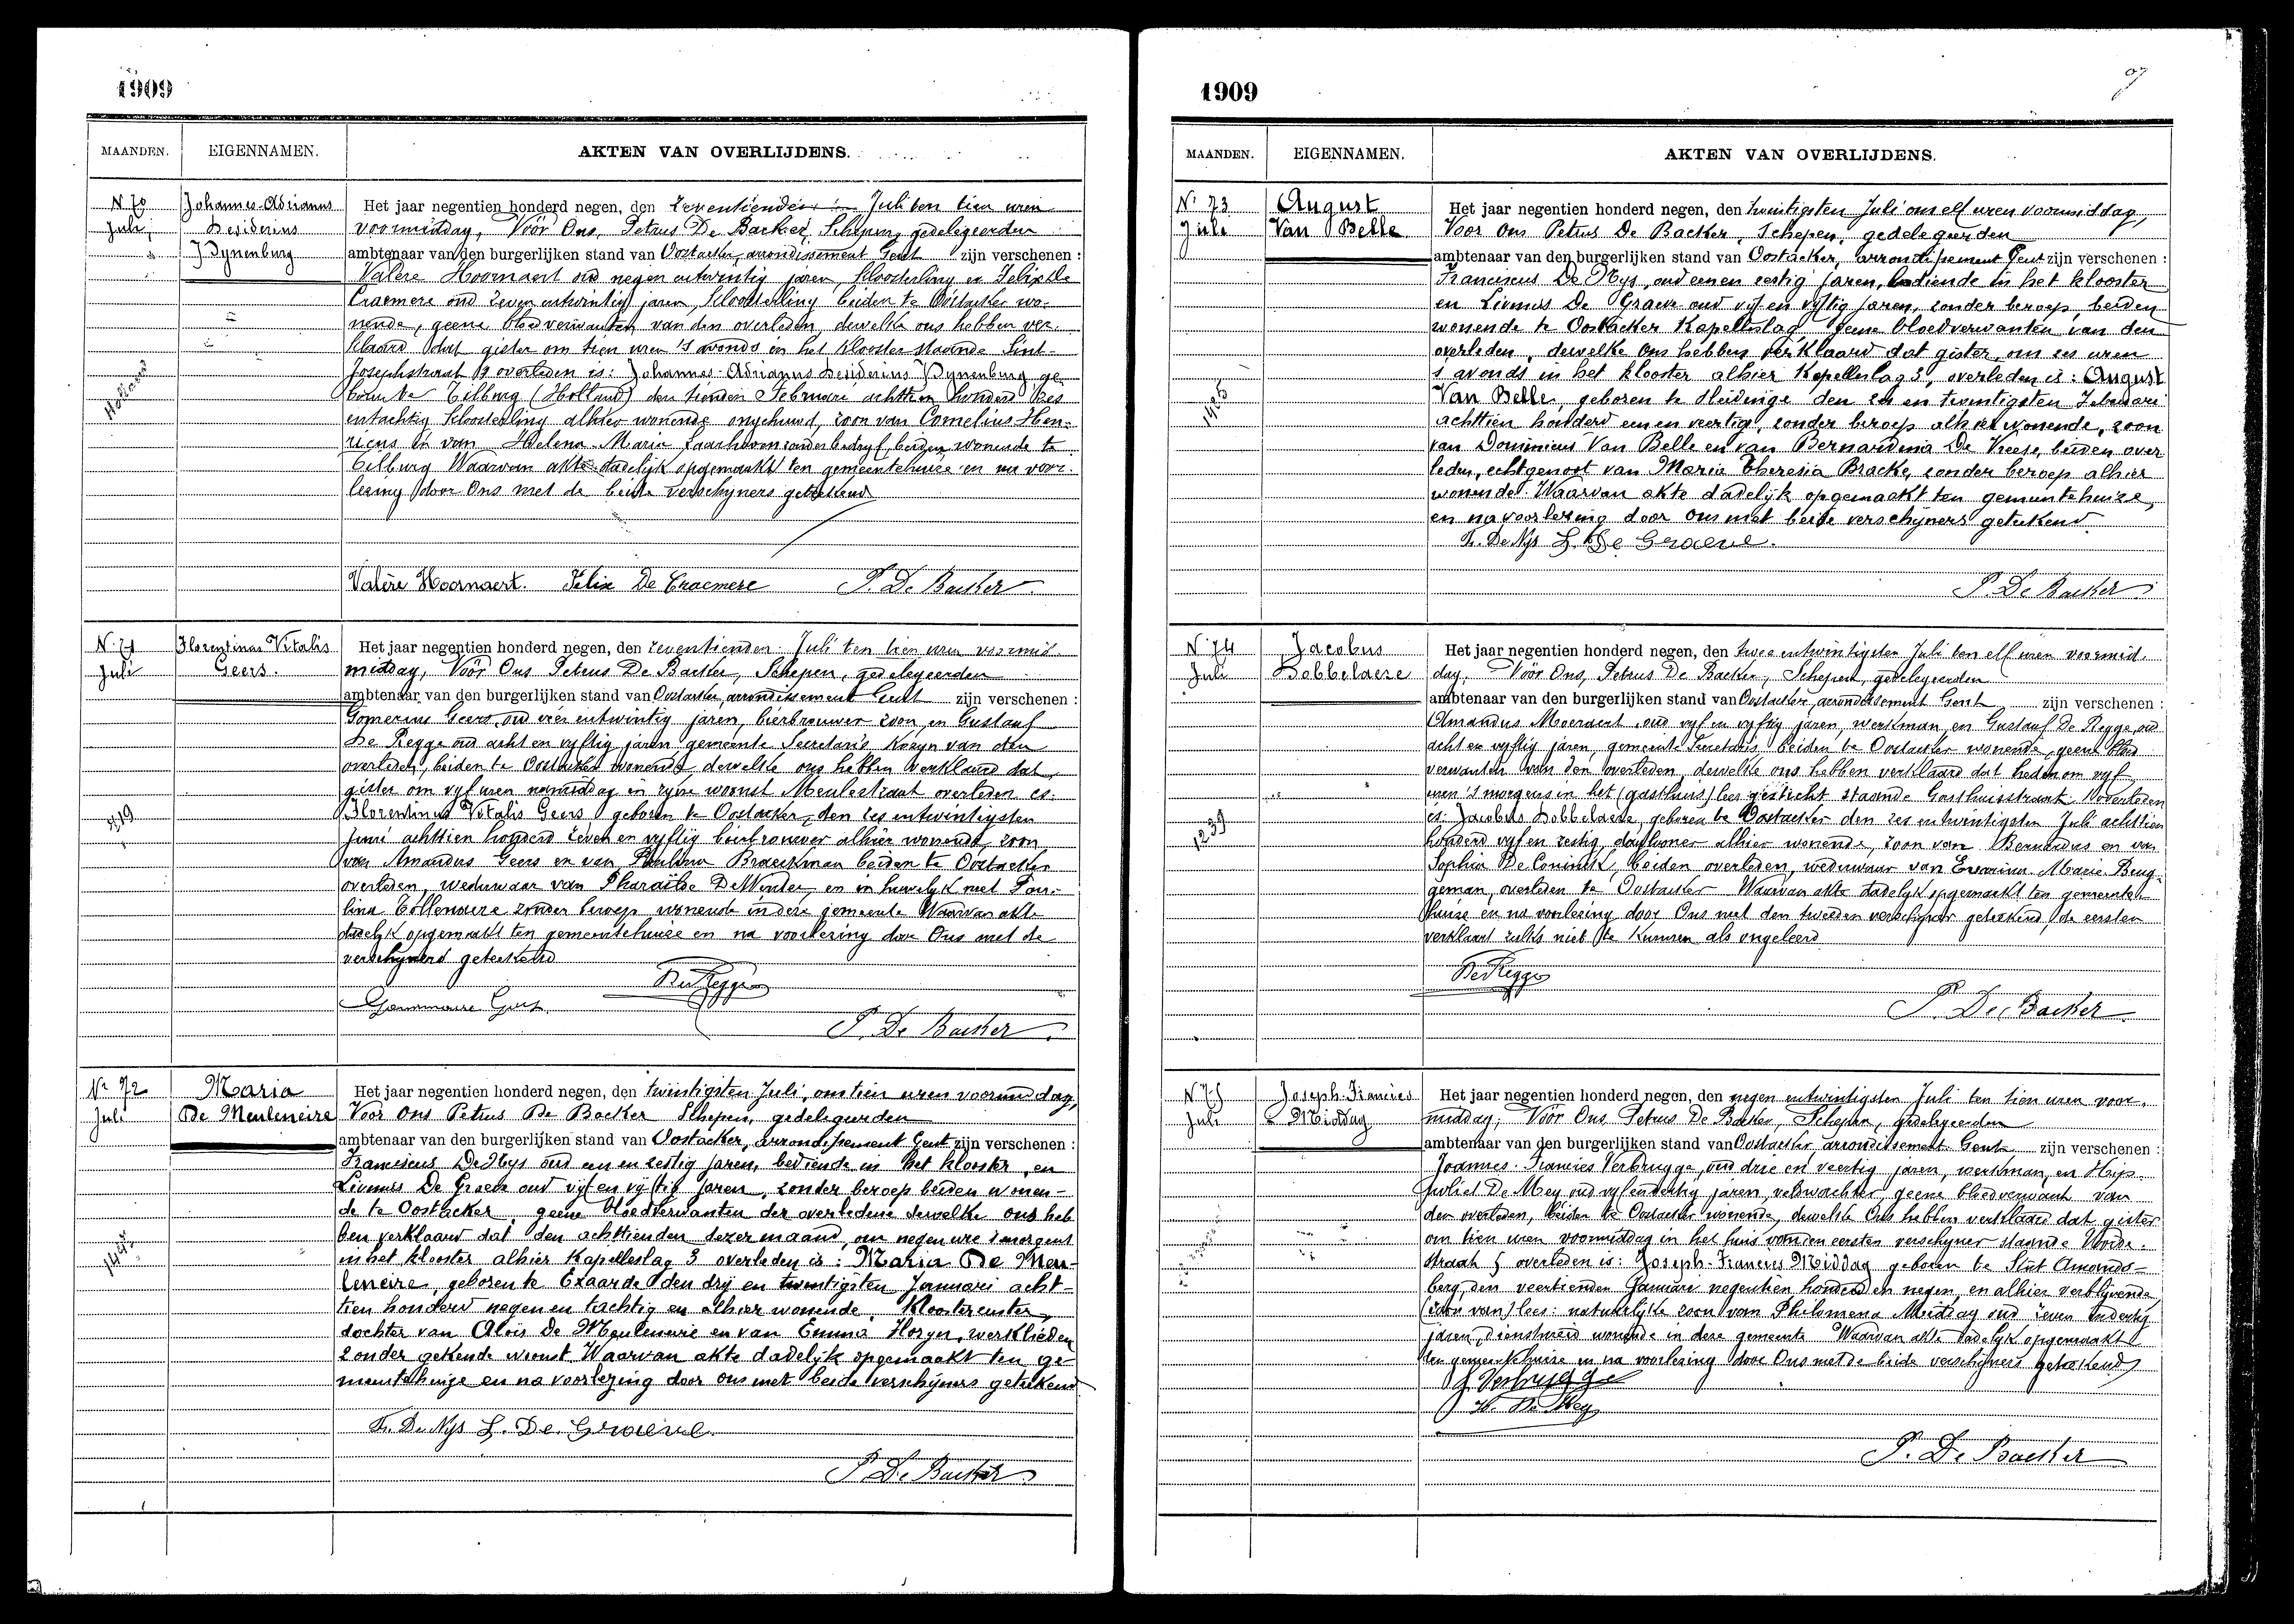 1909
MAANDEN. EIGENNAMEN. AKTEN VAN OVERLIJDENS.
N. 70
Juli
Johannes-Adrianus
Desiderius
Dynenburg
Het jaar negentien honderd negen, den zeventienden Juli ten tien uren
voormiddag, Vóór Ons, Petrus De Backer, Schepen, gedelegeerden
ambtenaar van den burgerlijken stand van Oostacker, arrondissement Gent zijn verschenen :
Valere Hoornaert oud negen entwintig jaren, kloosterling en Felix De
Craemere oud zeven entwintig jaren, kloosterling beiden te Oostacker wo-
nende, geene bloedverwanten van den overleden, dewelke ons hebben ver-
klaard dat gister om tien uren 's avonds in het klooster staande Sint-
Josephstraat overleden is: Johannes-Adrianus Desiderius Dynenburg ge-
boren te Tilburg (Holland) den tienden Februari achttien honderd zes
entachtig kloosterling alhier wonende ongehuwd, zoon van Cornelius Hen-
ricus en van Helena Maria zonder bedryf, beiden wonende te
Tilburg Waarvan akte dadelijk opgemaakt ten gemeentehuize en na voor-
lezing door Ons met de beide verschyners geteekend
Holland
Valère Hoornaert. Felix De Craemere P. De Backer
N. 71
Juli
Florentinus Vitalis
Geers.
Het jaar negentien honderd negen, den zeventienden Juli ten tien uren voormid-
middag, Vóór Ons Petrus De Backer, Schepen, gedelegeerden
ambtenaar van den burgerlijken stand van Oostacker, arrondissement Gent zijn verschenen :
Gomerius Geers, oud vier entwintig jaren, bierbrouwer zoon, en Gustaaf
De Regge oud acht en vyftig jaren gemeente Secretaris Kozyn van den
overleden, beiden te Oostacker wonende, dewelke ons hebben verklaard dat
gister om vyf uren namiddag in zyne woonst Meulestraat overleden is:
Florentinus Vitalis Geers geboren te Oostacker, den zes entwintigsten
Juni achttien honderd zeven en vyftig bierbrouwer alhier wonende, zoon
van Amandus Geers en van Paulina Braeckman beiden te Oostacker
overleden, weduwaar van Pharaïlde DeWinter, en in huwelyk met Pau-
lina zonder beroep wonende in deze gemeente Waarvan akte
dadelyk opgemaakt ten gemeentehuize en na voorlezing door Ons met de
verschyners geteekend
DeRegge
Geers
P. De Backer
Nr 72
Juli
Maria
De Meuleneire
Het jaar negentien honderd negen, den twintigsten Juli, om tien uren voormiddag,
Voor Ons Petrus De Backer Schepen, gedelegeerden
ambtenaar van den burgerlijken stand van Oostacker, arrondissement Gent zijn verschenen :
Franciscus De Nys oud een en zestig jaren, bediende in het klooster, en
Livinus De Graeve oud vijf en vijftig jaren, zonder beroep beiden wonen-
de te Oostacker, geene bloedverwanten der overledene dewelke ons heb
ben verklaard dat den achttienden dezer maand, om negen ure 's morgens
in het klooster alhier Kapelleslag 3 overleden is: Maria De Meu-
leneire, geboren te Exaarde den drij en twintigsten Januari acht-
tien honderd negen en tachtig en alhier wonende, Kloosterzuster,
dochter van Alois De Meuleneire en van Emma werklieden
zonder gekende woonst. Waarvan akte dadelijk opgemaakt ten ge-
meentehuize en na voorlezing door ons met beide verschijners geteekend
Fr. De Nijs L. De Graeve
P. De Backer
1909
MAANDEN. EIGENNAMEN. AKTEN VAN OVERLIJDENS.
Nr 73
Juli
August
Van Belle
Het jaar negentien honderd negen, den twintigsten Juli om elf uren voormiddag,
Voor Ons Petrus De Backer, Schepen, gedelegeerden
ambtenaar van den burgerlijken stand van Oostacker, arrondissement Gent zijn verschenen :
Franciscus De Nys, oud een en zestig jaren, bediende in het klooster
en Livinus De Graeve oud vijf en vijftig jaren, zonder beroep, beiden
wonende te Oostacker Kapelleslag geene bloedverwanten van den
overleden, dewelke ons hebben verklaard dat gister, om zes uren
's avonds in het klooster alhier Kapelleslag 3, overleden is: August
Van Belle, geboren te Sleidinge den zes en twintigsten Februari
achttien honderd een en veertig, zonder beroep alhier wonende, zoon
van Dominicus Van Belle en van Bernardina De Vreese, beiden over
leden, echtgenoot van Maria Theresia Bracke, zonder beroep alhier
wonende. Waarvan akte dadelijk opgemaakt ten gemeentehuize,
en na voorlezing door ons met beide verschijners geteekend
Fr. De Nijs L. De Graeve.
P. De Backer
N. 74
Juli
Jacobus
Dobbelaere
Het jaar negentien honderd negen, den twee entwintigsten Juli ten elf uren voormid-
dag, Vóór Ons, Petrus De Backer, Schepen, gedelegeerden
ambtenaar van den burgerlijken stand van Oostacker, arrondissement Gent zijn verschenen :
Amandus Moeraert, oud vyf en vyftig jaren, werkman, en Gustaaf De Regge oud
acht en vyftig jaren, gemeente Secretaris, beiden te Oostacker wonende, geene bloed
verwanten van den overleden, dewelke ons hebben verklaard dat heden om vyf
uren 's morgens in het (gasthuis) lees gesticht staande Gasthuisstraat overleden
is: Jacobus Dobbelaere, geboren te Oostacker den zes entwintigsten Juli achttien
honderd vyf en zestig, daglooner alhier wonende, zoon van Bernardus en van
Sophia De Coninck, beiden overleden, weduwaar van Marie Brug-
geman, overleden te Oostacker Waarvan akte dadelyk opgemaakt ten gemeente-
huize en na voorlezing door Ons met den tweeden verschyner geteekend, de eersten
verklaart zulks niet te kunnen als ongeleerd
1239
DeRegge
P. De Backer
N. 75
Juli
Joseph-Francies
Middag
Het jaar negentien honderd negen, den negen entwintigsten Juli ten tien uren voor-
middag, Vóór Ons Petrus De Backer, Schepen, gedelegeerden
ambtenaar van den burgerlijken stand van Oostacker arrondissement Gent zijn verschenen :
Joannes-Francies Verbrugge, oud drie en veertig jaren, werkman, en Hip-
poliet De Mey oud vyf endertig jaren, veldwachter, geene bloedverwant van
den overleden, beiden te Oostacker wonende, dewelke Ons hebben verklaard dat gister
om tien uren voormiddag in het huis van den eersten verschyner staande
straat 5 overleden is: Joseph-Francies Middag geboren te Sint Amands-
berg, den veertienden Januari negentien honderd en negen, en alhier verblyvende,
(zoon van) lees: natuurlyke zoon van Philomena Middag oud zeven endertig
jaren, dienstmeid wonende in deze gemeente Waarvan akte dadelyk opgemaakt
ten gemeentehuize en na voorlezing door Ons met de beide verschyners geteekend
J Verbrugge
H. De Mey
P. De Backer